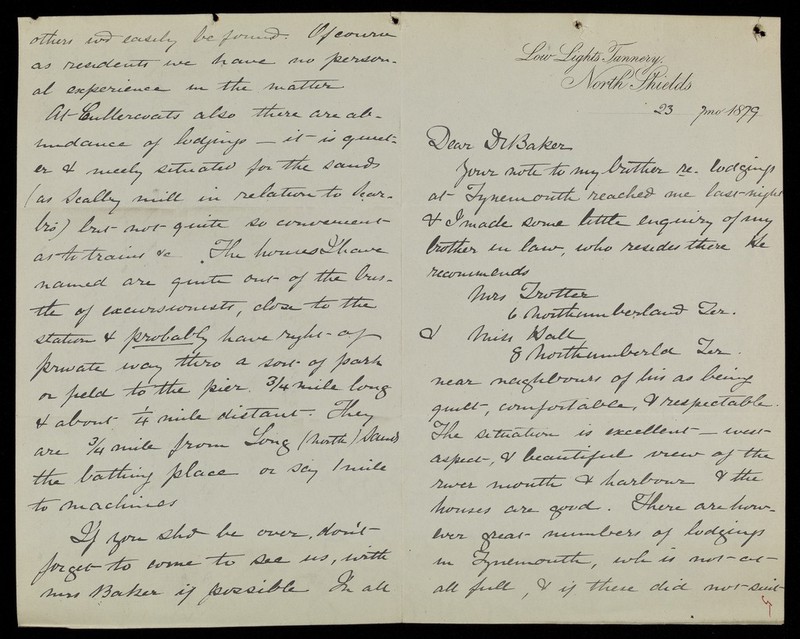 Low Lights Tannery,
North Shields
23 7mo 1879
Dear Dr Baker
Your note to my brother re. lodgings
at Tynemouth reached me last night
& I made some little enquiry of my
brother in law, who resides there He
recommends
Mrs Trotter
6 Northumberland Ter.
& Miss Hall
8 Northumberld Ter.
near neighbours of his as being
quiet, comfortable, & respectable.
The situation is excellent — west
aspect, & beautiful view of the
river mouth & harbour & the
houses are good. There are how-
ever great numbers of lodgings
in Tynemouth, wh is not at
all full, & if these did not suit
others wd easily be found. Of course
as residents we have no person-
al experience in the matter
At Cullercoats also there are ab-
undance of lodgings — it is quiet-
er & nicely situated for the sands
(as Scalby mill in relation to Scar-
bro) but not quite so convenient
as to trains &c. The houses I have
named are quite out of the bus-
tle of excursionists, close to the
station & probably have right of
private way thro a sort of park
or field to the pier, 3/4 mile long
& about 1/4 mile distant. They
are 3/4 mile from Long (North) Sands
the bathing place or say 1 mile
to machines
If you shd be over, don't
forget to come to see us, with
Mrs Baker if possible In all